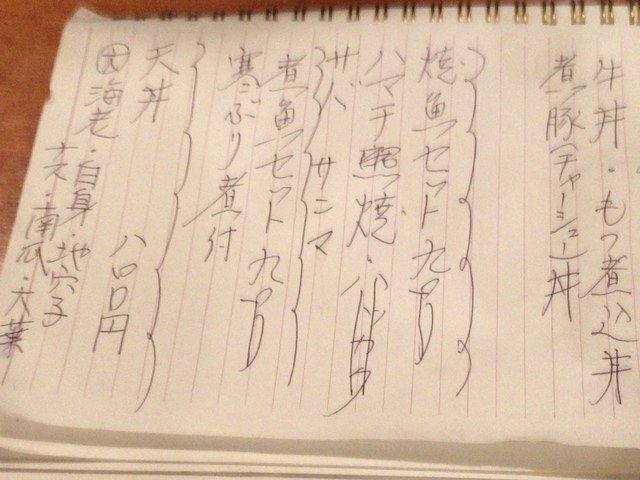 牛丼・もつ煮込丼
煮豚(チャーシュー)丼
焼魚セット 九百
ハマチ照焼・
サバ サンマ
煮魚セット 九百
寒ぶり煮付
天丼 八〇〇円
大 海老・白身・地穴子
ナス・南瓜・大葉